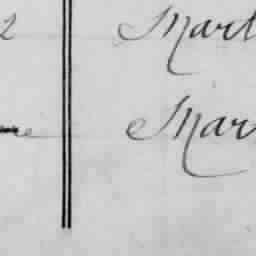 2 Mart
Mar